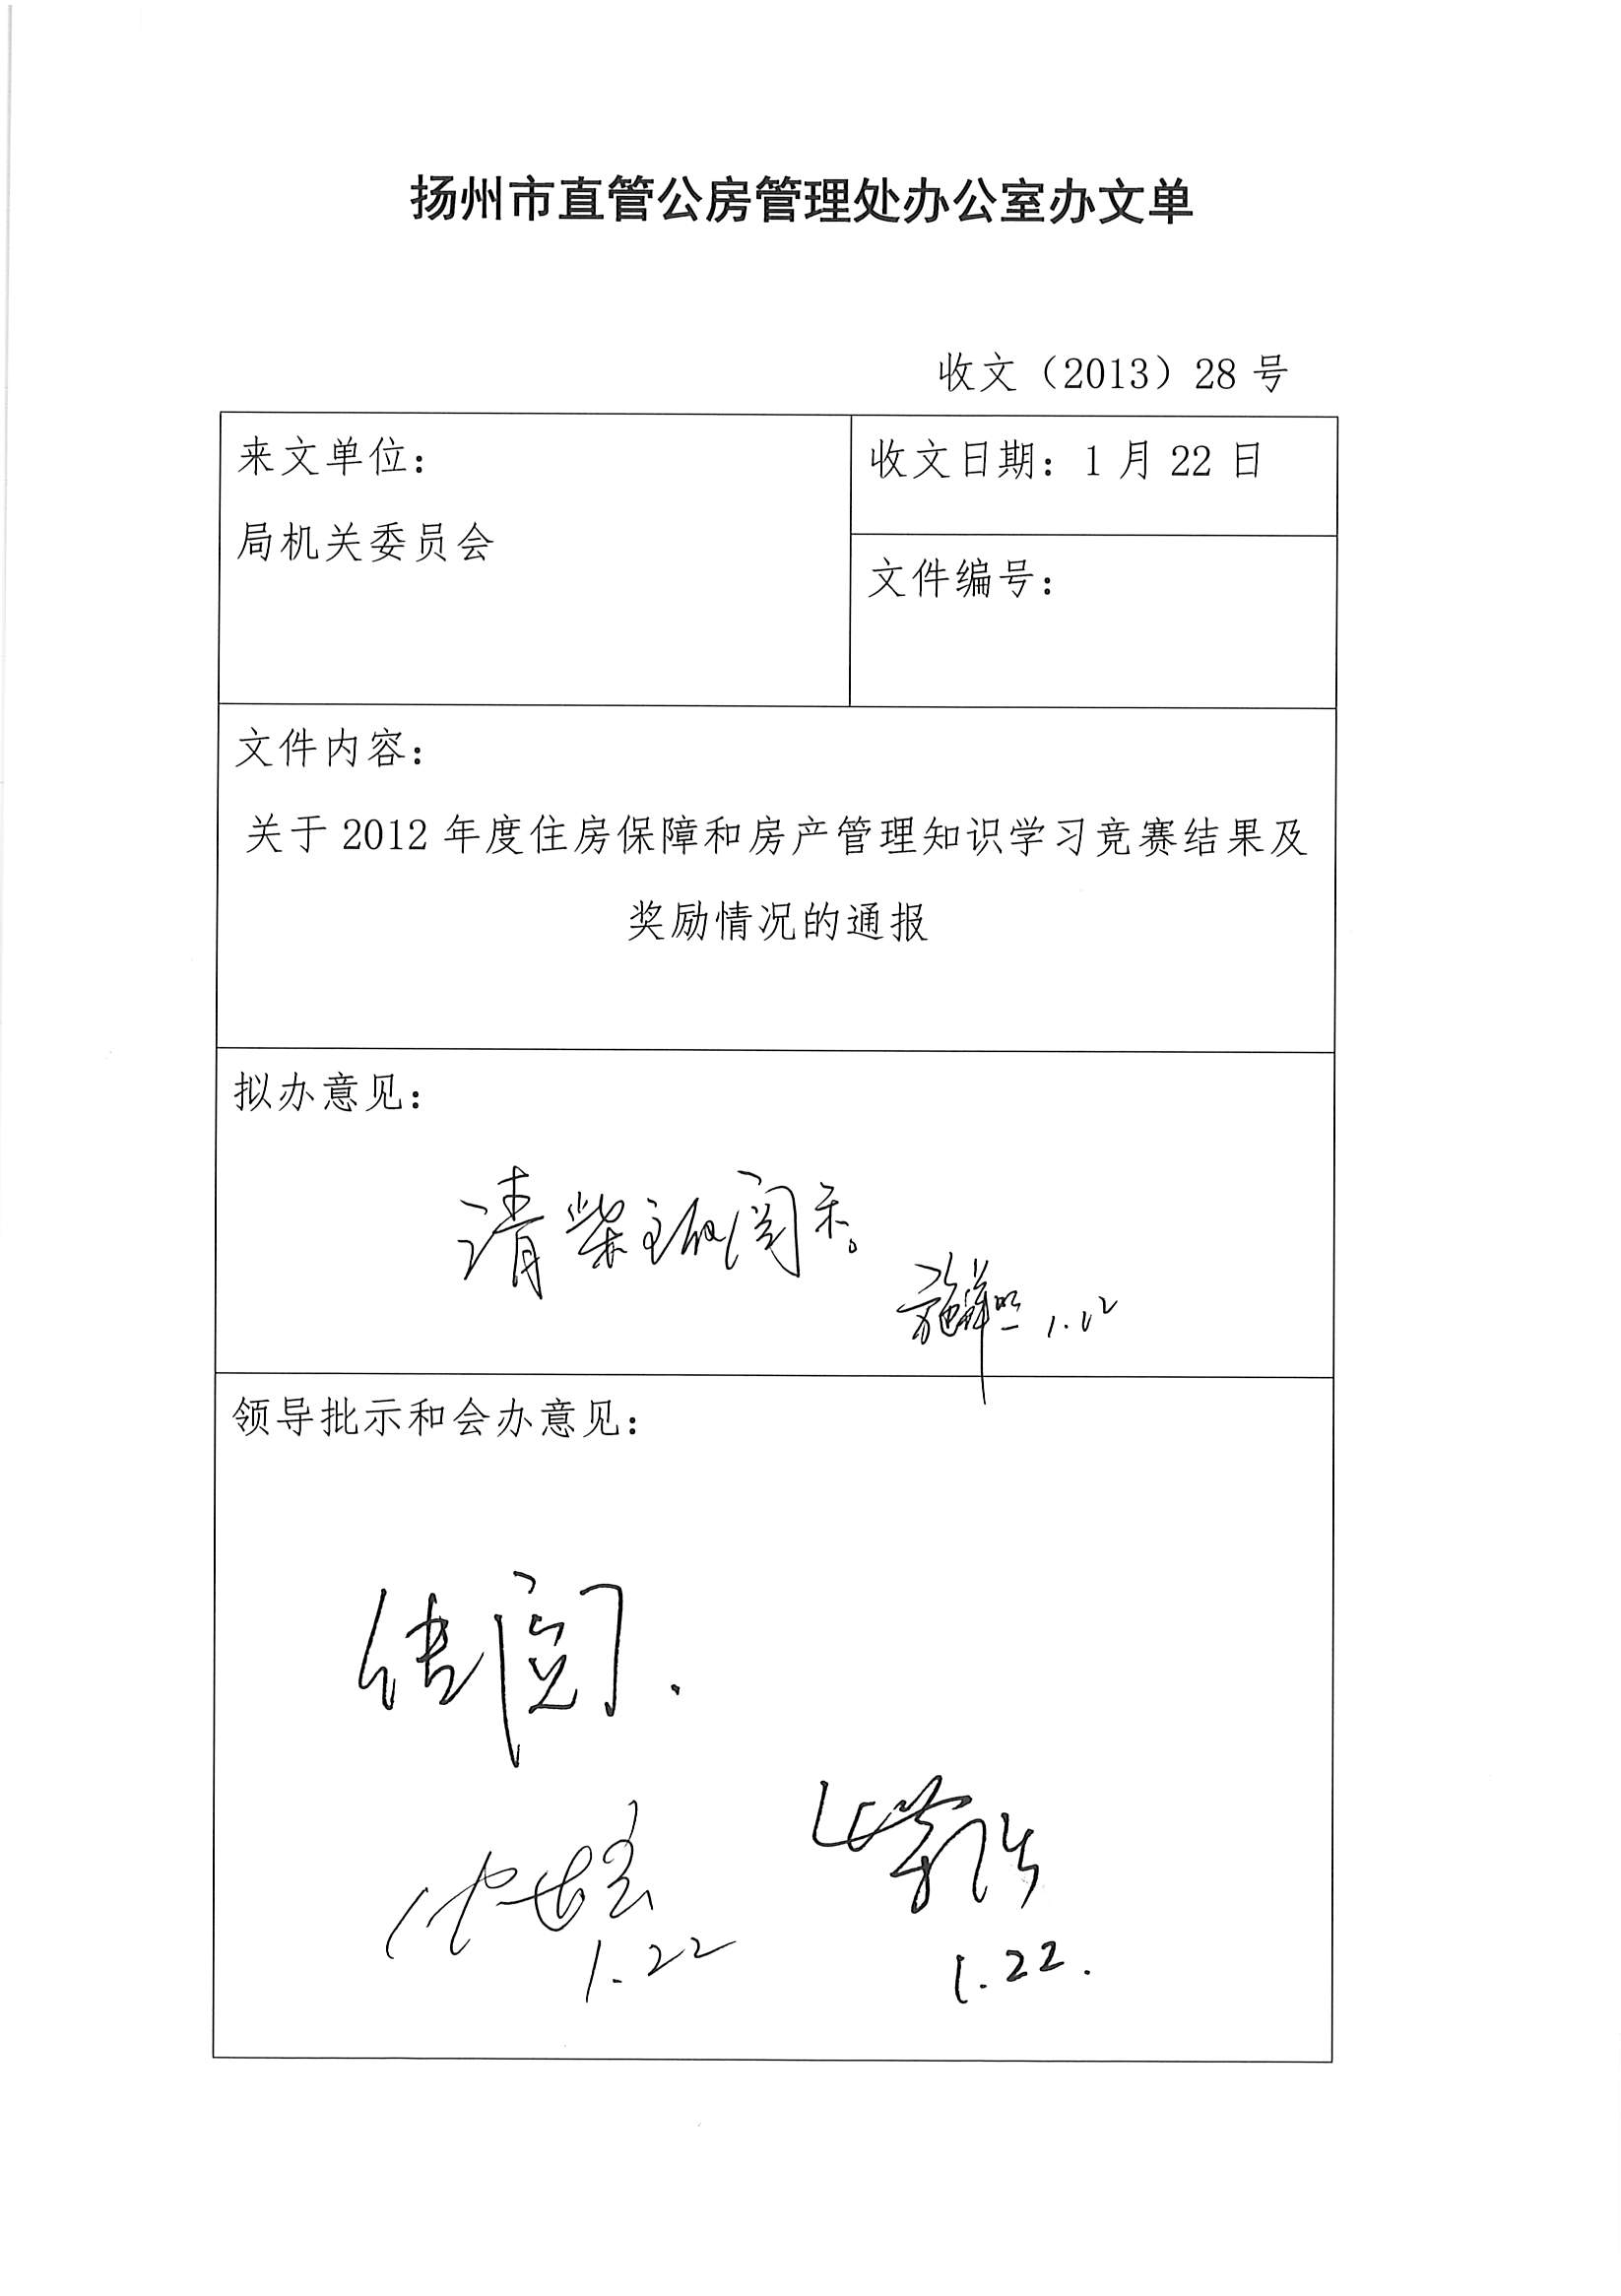 扬州市直管公房管理处办公室办文单
收文（2013）28 号
来文单位：
局机关委员会
收文日期：1 月 22 日
文件编号：
文件内容：
关于 2012 年度住房保障和房产管理知识学习竞赛结果及
奖励情况的通报
拟办意见：
请柴主任阅示。
1.22
领导批示和会办意见：
传阅.
1.22
1.22.